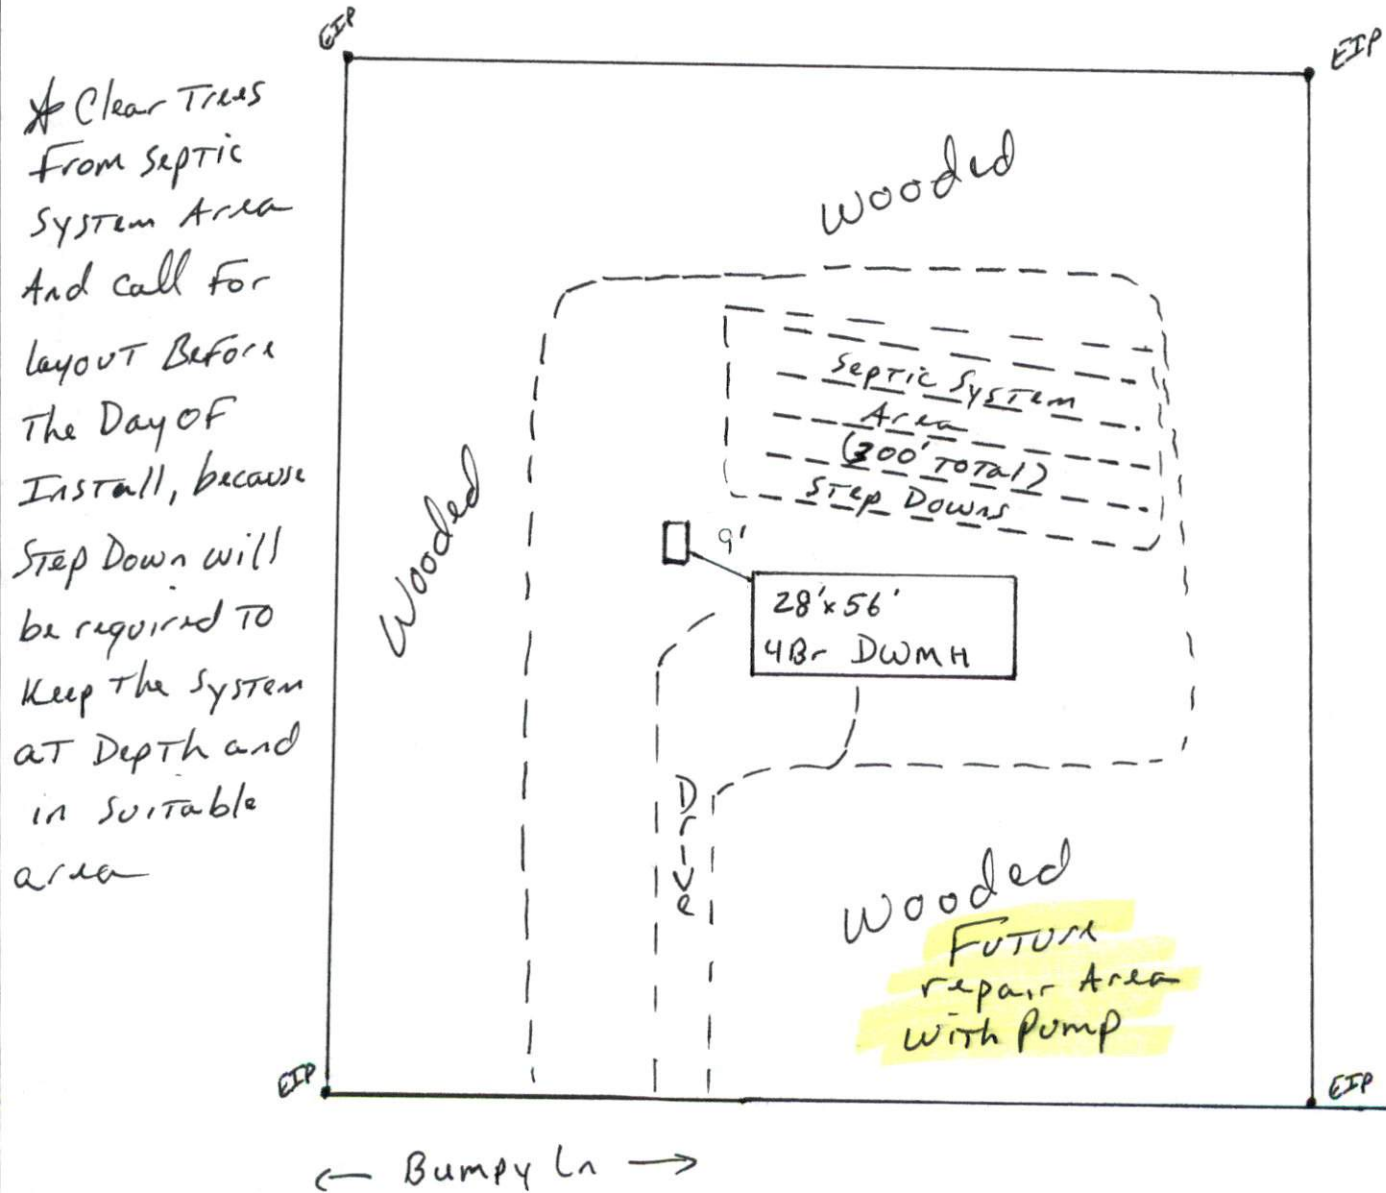 EIP
EIP
* Clear Trees
From septic
system Area
And call For
layout Before
The Day OF
Install, because
Step Down will
be required To
Keep The System
at Depth and
in suitable
area
wooded
Septic System
Area
(300' Total)
Step Downs
Wooded
9'
28'x56'
4Br DWMH
Drive
wooded
Future
repair Area
with Pump
EIP
EIP
← Bumpy Ln →